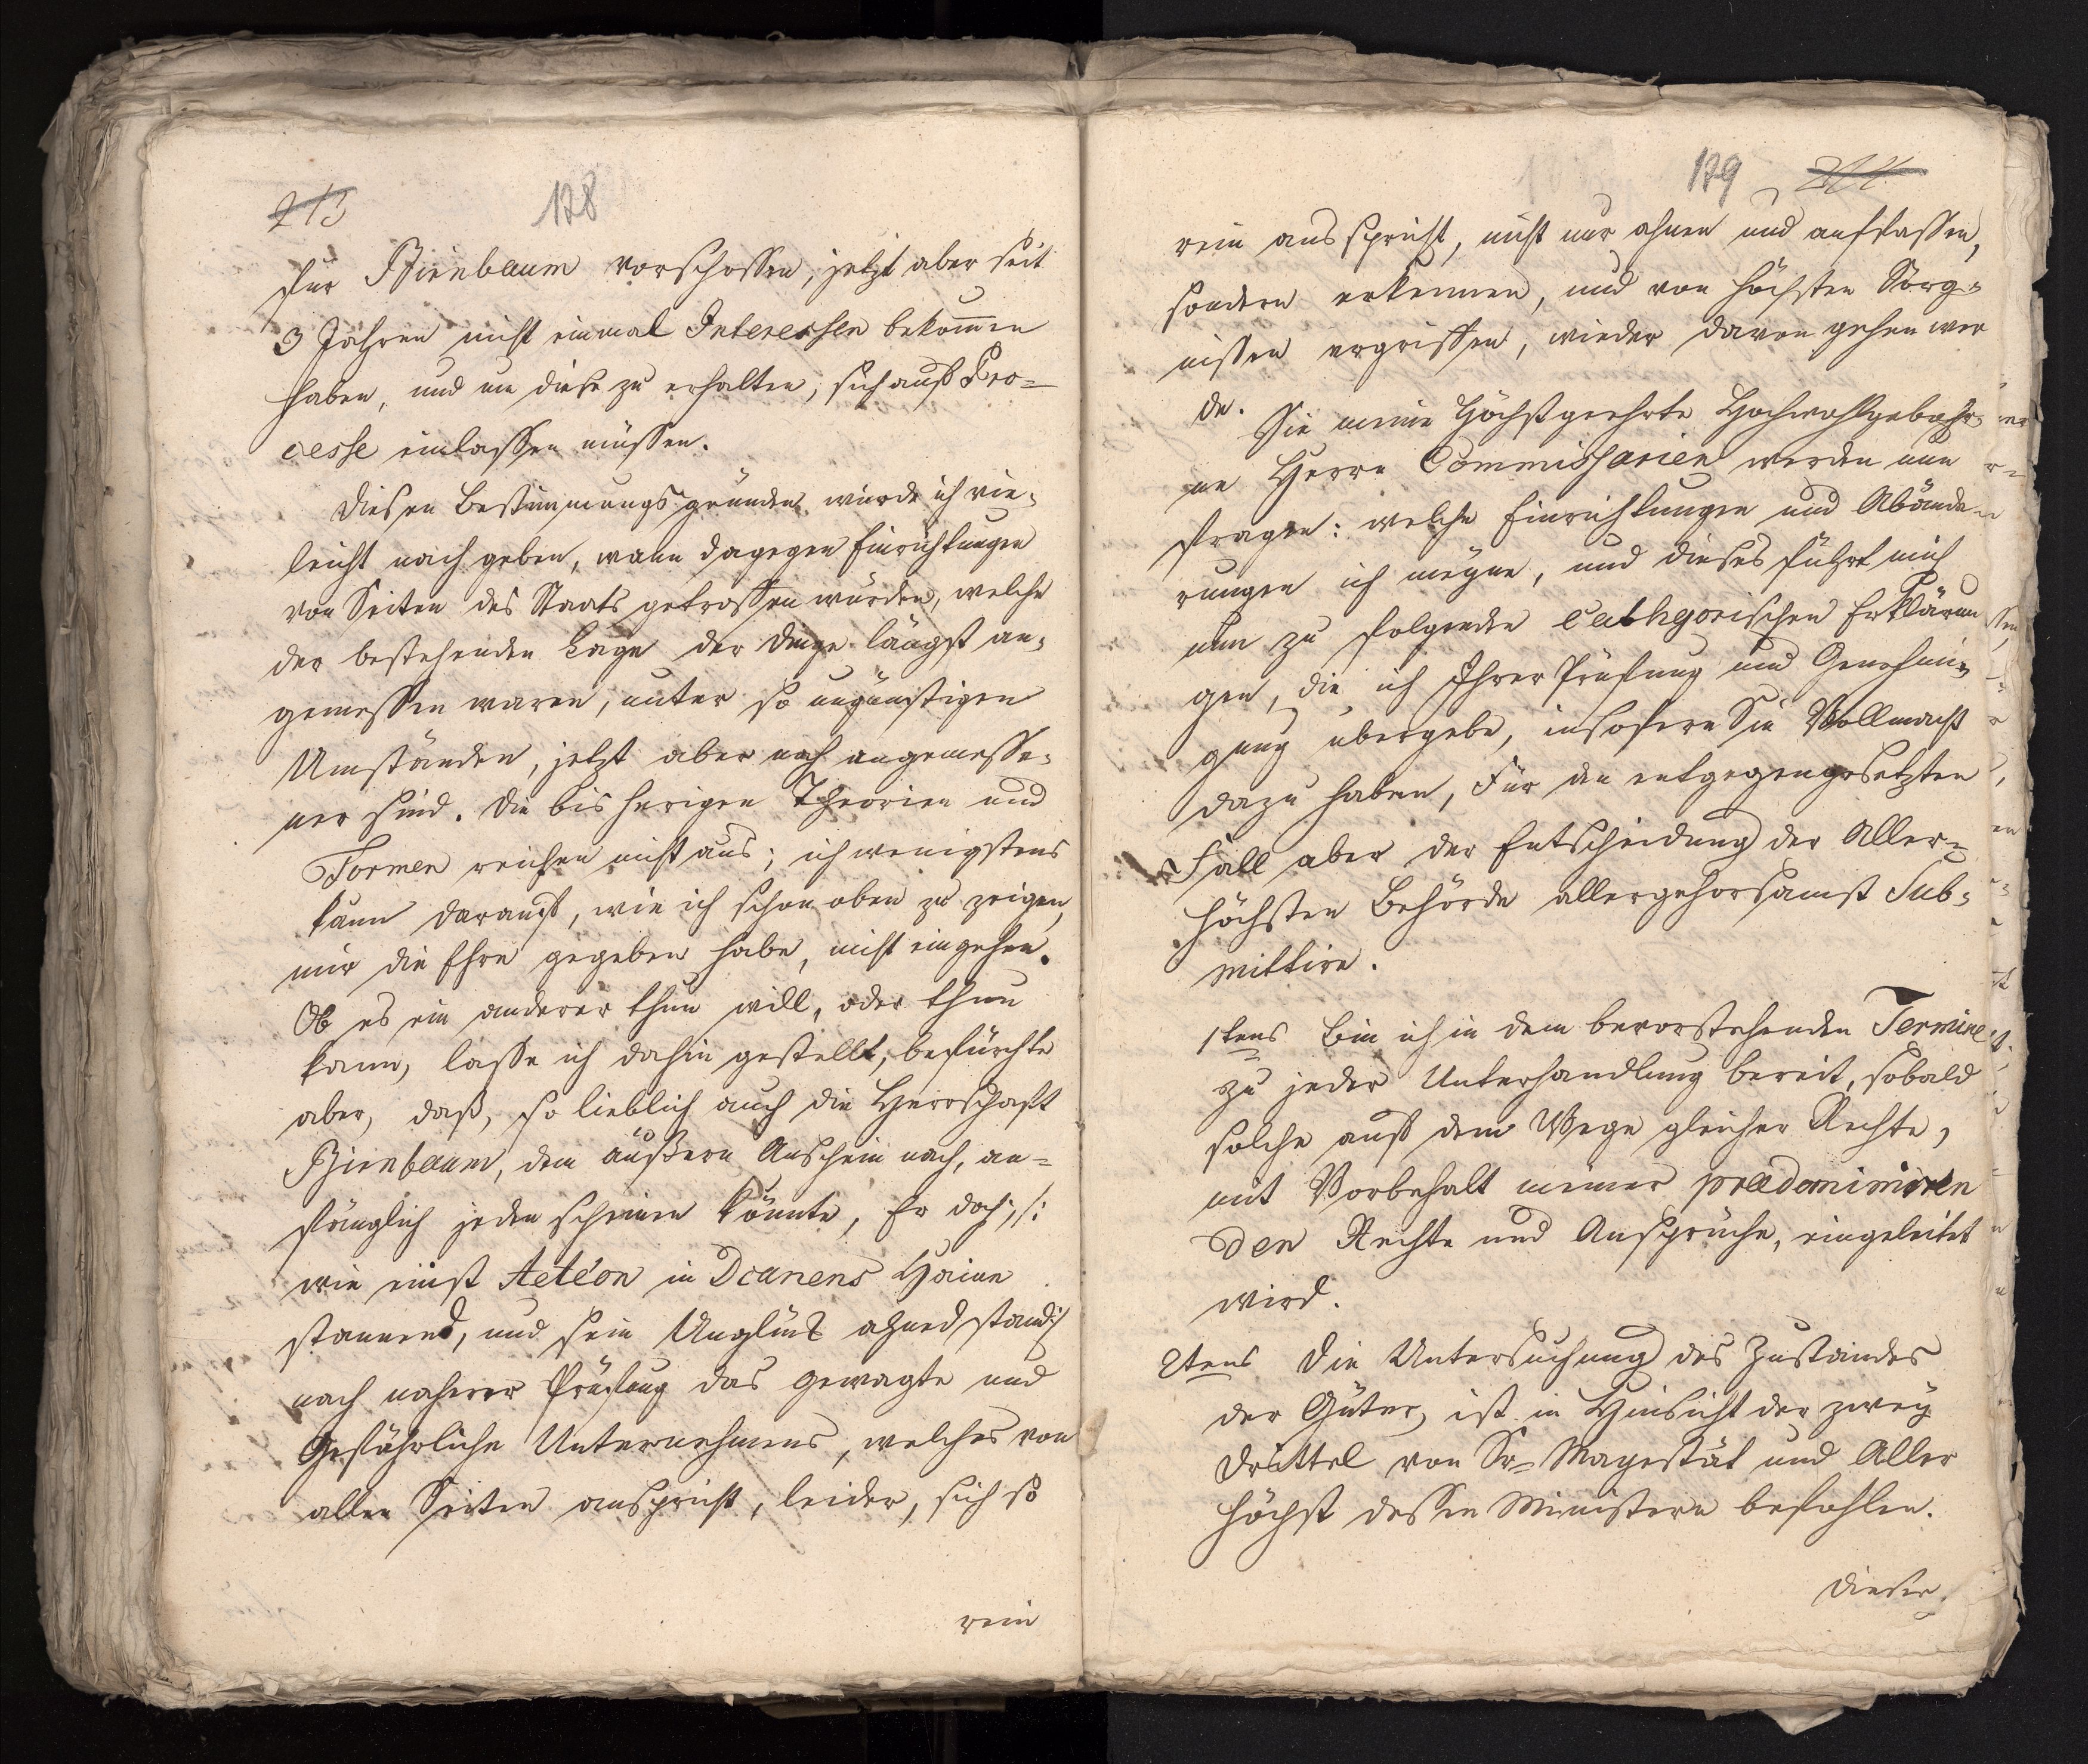 213
128
für Birnbaum vorschossen, jetzt aber seit
3 Jahren nicht einmal Interessen bekom̄en
haben, und um diese zu erhalten, sich auf Pro-
cesse einlassen müssen.
Diesen Bestimmungsgründen würde ich vie-
leicht nachgeben, wann dagegen Einrichtungen
von Seiten des Staats getroffen würden, welche
der bestehenden Lage der Dinge längst an-
gemessen waren, unter so ungünstigen
Umständen, jetzt aber noch angemesse-
ner sind. Die bisherigen Theorien und
Formen reichen nicht aus; ich wenigstens
kann darauf, wie ich schon oben zu zeigen,
mir die Ehre gegeben habe, nicht eingehen.
Ob es ein anderer thun will, oder thun
kann, lasse ich dahin gestellt, befürchte
aber, daß, so lieblich auch die Herrschaft
Birnbaum, dem äußern Anschein nach, an-
fänglich jeden scheinen könnte, Er doch, /:
wie einst Actéon in Dianens Haine
staunend, und sein Unglück ahned stand:/
nach naherer Prüfung das gewagte und
Gefährliche Unternehmens, welches von
allen Seiten anspricht, leider, sich so
rein
129
214
rein ausspricht, nicht nur ahnen und auffassen,
sondern erkennen, und von höchsten Sorg-
nissen ergriffen, wieder davon gehen wer
de.
Sie meine Höchstgeehrte Hochwohlgebohr
ne Herrn Commissarien werden nun
fragen: welche Einrichtungen und Abände-
rungen ich meyne, und dieses führt mich
nun zu folgenden cathgorischen Erklärun
gen, die ich Ihrer Prüfung und Genehmi-
gung übergebe, insofern Sie Vollmacht
dazu haben, Für den entgegengesetzten
Fall aber der Entscheidung der Aller-
höchsten Behörde allergehorsamst Sub-
mittire.
1tens Bin ich in dem bevorstehenden Termine
zu jeder Unterhandlung bereit, sobald
solche auf dem Wege gleicher Rechte,
mit Vorbehalt meiner prædominiren
den Rechte und Ansprüche, eingeleitet
wird.
2tens Die Untersuchung des Zustandes
der Güter, ist in Hinsicht der zwey
Drittel von Sr= Magestät und Aller
höchst dessen Ministern befohlen.
Dieser